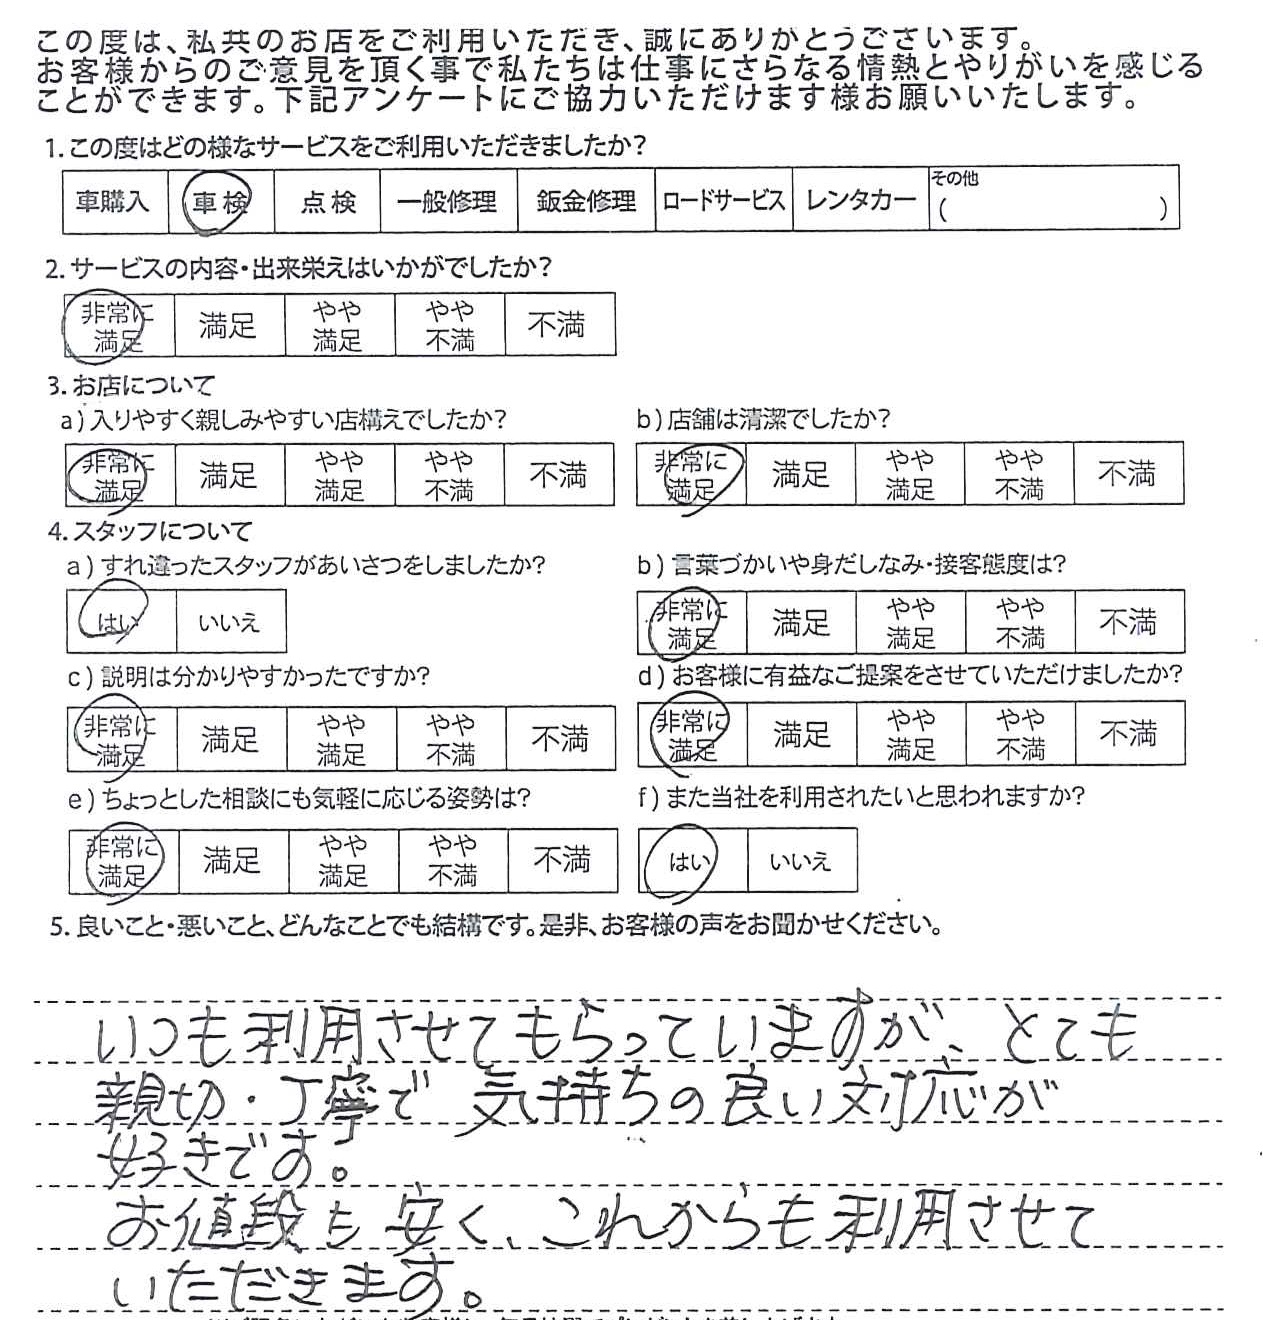 この度は、私共のお店をご利用いただき、誠にありがとうございます。
お客様からのご意見を頂く事で私たちは仕事にさらなる情熱とやりがいを感じる
ことができます。下記アンケートにご協力いただけます様お願いいたします。
1.この度はどの様なサービスをご利用いただきましたか?
車購入 車検 点検 一般修理 鈑金修理 ロードサービス レンタカー その他 ( )
2.サービスの内容・出来栄えはいかがでしたか?
非常に満足 満足 やや満足 やや不満 不満
3.お店について
a)入りやすく親しみやすい店構えでしたか?
非常に満足 満足 やや満足 やや不満 不満
b)店舗は清潔でしたか?
非常に満足 満足 やや満足 やや不満 不満
4.スタッフについて
a)すれ違ったスタッフがあいさつをしましたか?
はい いいえ
b)言葉づかいや身だしなみ・接客態度は?
非常に満足 満足 やや満足 やや不満 不満
c)説明は分かりやすかったですか?
非常に満足 満足 やや満足 やや不満 不満
d)お客様に有益なご提案をさせていただけましたか?
非常に満足 満足 やや満足 やや不満 不満
e)ちょっとした相談にも気軽に応じる姿勢は?
非常に満足 満足 やや満足 やや不満 不満
f)また当社を利用されたいと思われますか?
はい いいえ
5.良いこと・悪いこと、どんなことでも結構です。是非、お客様の声をお聞かせください。
いつも利用させてもらっていますが、とても
親切・丁寧で気持ちの良い対応が
好きです。
お値段も安く、これからも利用させて
いただきます。